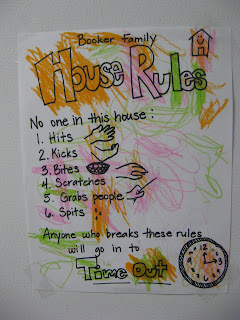 Booker Family
House Rules
No one in this house:
1. Hits
2. Kicks
3. Bites
4. Scratches
5. Grabs people
6. Spits
Anyone who breaks these rules
will go in to
Time Out
12
3